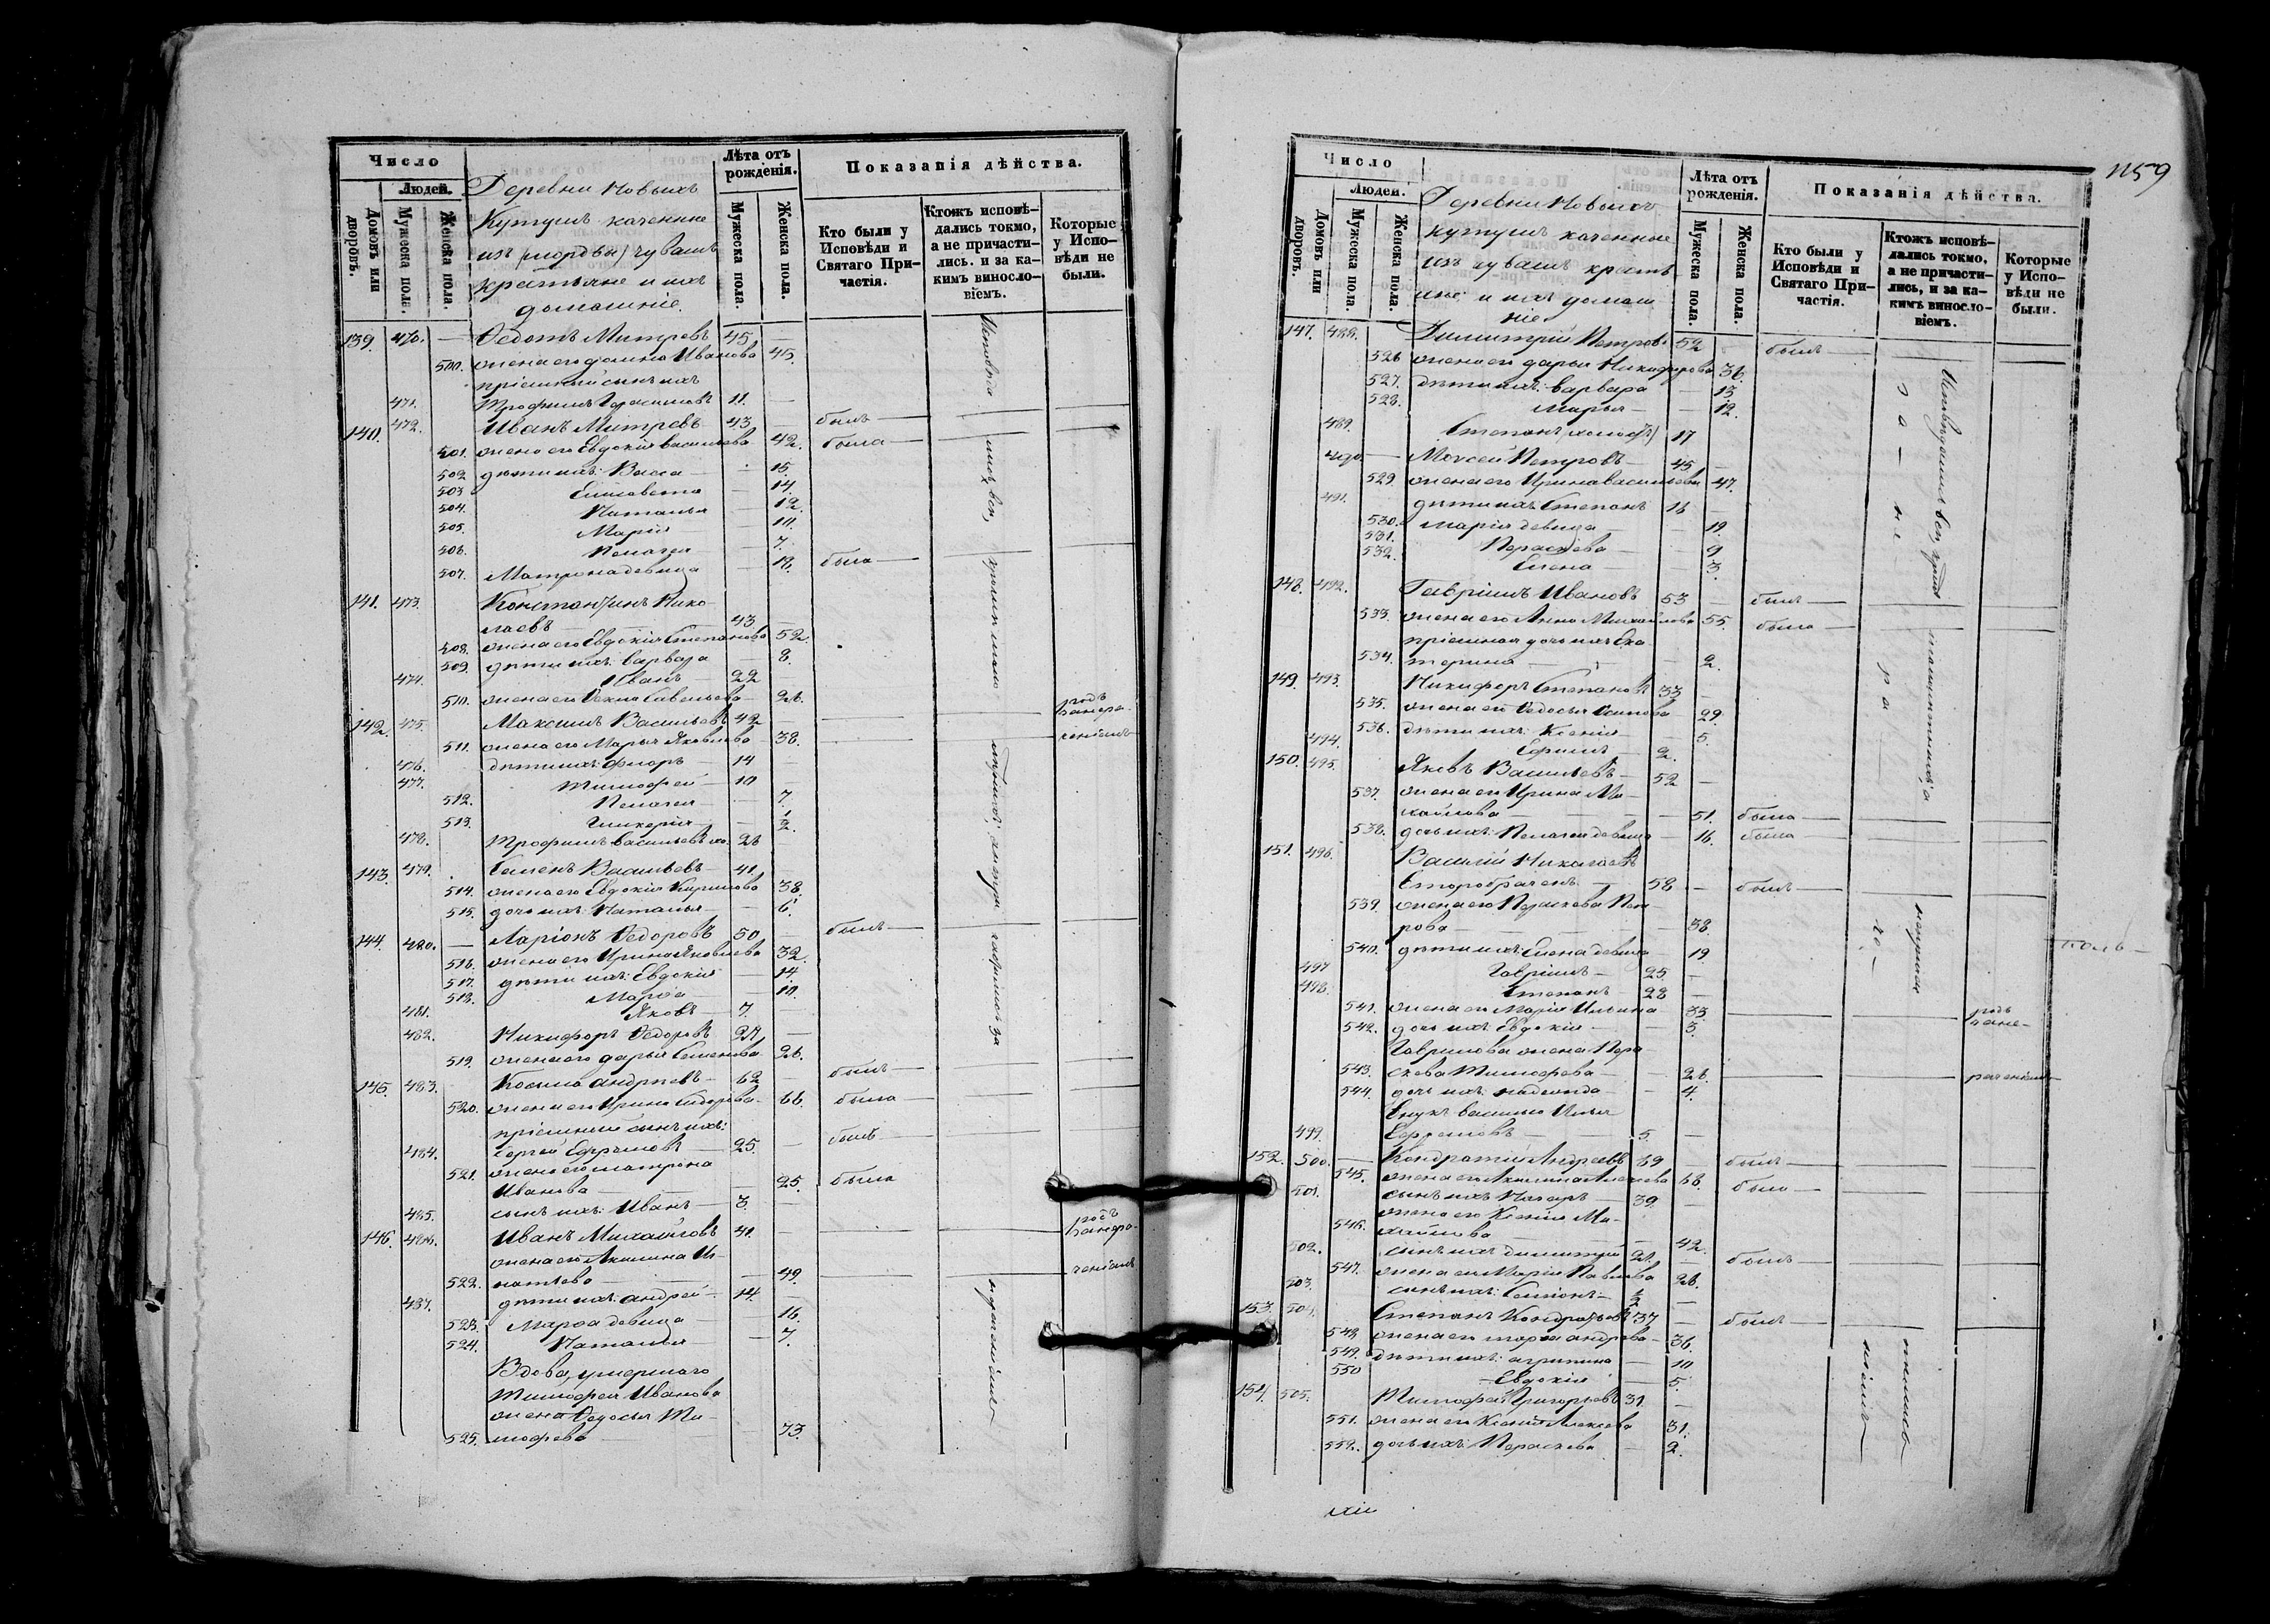 Число
Людей.
Домовъ или дворовъ.
Мужеска пола.
Женска пола.
Деревни Новыхъ
из (мордвы) чувашъ
крестьяне и ихъ
домашніе.
Лѣта отъ рожденія.
Мужеска пола.
Женска пола.
Показанія дѣйства.
Кто были у Исповѣди и Святаго Причастія.
Ктожъ исповѣдались токмо, а не причастились. и за какимъ винословіемъ.
Которые у Исповѣди не были.
139. 470. — Ѳедотъ Митревъ 45 —
500. жена его Иванова 45.
пріемный сынъ ихъ
471. Трофимъ 11. —
140. 472. Иванъ Митревъ 43 — былъ —
501. жена его Евдокія Васильева 42. была —
502 дѣти ихъ: Васса — 15.
503 Елисавета — 14.
504. Наталья — 12.
505. Марія — 10.
506. Пелагея — 7.
507. Матрона девица — 18. была —
141. 473. Константинъ Нико-
лаевъ — 43. —
508. жена его Евдокія Степанова 52.
509. дѣти ихъ: Варвара — 8.
474. Иванъ — 22
510. жена его Савельева 26.
142. 475. Максимъ Васильевъ 42 —
511. жена его Марья Яковлева — 38.
476. дѣти ихъ: Флоръ — 14 —
477. Тимофей — 10
512. Пелагея — 7.
513. Гликерія — 1/2.
478. Трофимъ Васильевъ хо. 26
143. 479. Семенъ Васильевъ — 41.
514. жена его Евдокія Кирилова 38.
515. дочь ихъ: Наталья — 6.
144. 480. — Ларіонъ Ѳедоровъ 50 — былъ —
516. жена его Ирина Яковлева 32.
517. дѣти ихъ: Евдокія — 14.
518. Марѳа — 10.
481. Яковъ — 7. —
482. Никифоръ Ѳедоровъ 27 —
519. жена его Дарья Семенова 26.
145. 483. Косьма Андреевъ — 62 — былъ —
520. жена его Ирина Сидорова — 66. была —
пріемный сынъ ихъ:
484. Сергей Ефремовъ — 25. — былъ —
521. жена его Матрона
Иванова — 25. была
485. сынъ ихъ: Иванъ — 3. —
146. 486. Иванъ Михайловъ 41. —
жена его Акилина Иг-
522. натьева — 49.
487. дѣти ихъ: Андрей — 14. —
523. Марѳа девица — 16.
524. Наталья — 7.
Вдова, умершаго
Тимофея Иванова
жена Ѳедосья Ти-
525. мофева — 73.
1159
Число
Людей.
Домовъ или дворовъ.
Мужеска пола.
Женска пола.
Деревни Новыхъ
изъ чувашъ кресть
яне и ихъ домаш
ніе.
Лѣта отъ рожденія.
Мужеска пола.
Женска пола.
Показанія дѣйства.
Кто были у Исповѣди и Святаго Причастія.
Ктожъ исповѣдались токмо, а не причастились, и за какимъ винословіемъ.
Которые у Исповѣди не были.
147. 488. Димитрій Петровъ 52 — былъ —
526 жена его Дарья Никифорова 36.
527. дѣти ихъ: Варвара — 13
528. Марья — 12.
489. Степанъ (холостъ) 17
490 — Моисей Петровъ — 45 —
529 жена его Ирина Васильева 47.
491. дѣти ихъ Степанъ 16 —
530. Марія девица — 19.
531. Параскева — 9
532. Елена — 3.
148. 492. Гавріилъ Ивановъ 53 — былъ —
533. жена его Анна Михайлова 55. была —
пріемная дочь ихъ Ека
534. терина — 2.
149. 493. Никифоръ Степановъ 33 —
535. жена его Ѳедосья Осипова 29.
536. дѣти ихъ: Ксенія — 5.
494. Ефремъ — 2.
150. 495. Яковъ Васильевъ — 52 —
537. жена его Ирина Ми-
хайлова — 51. была —
538. дочь ихъ: Пелагея девица — 16. была —
151. 496. Василій Николаевъ
Второбраченъ — 58 — былъ —
539. жена его Параскева Пет
рова — 38.
540. дѣти ихъ: Елена девица 19
497 Гавріилъ — 25 —
498. Степанъ — 28 —
541. жена его Марія Ильина 33.
542. дочь ихъ: Евдокія — 3.
Гаврилова жена Пара
543. скева Тимофева — 26.
544. дочь ихъ: Надежда — 4.
Внукъ Василья Илья
499. Ефремовъ — 5. —
152. 500. — Кондратій Андреевъ 69 — былъ —
545. жена его Акилина Алексеева 68. была —
501. сынъ ихъ Назаръ — 39. —
жена его Ксенія Ми-
546. хайлова — 42.
502. сынъ ихъ Димитрій 21. — былъ —
547. жена его Марія Павлова 26.
503. сынъ ихъ: Симеонъ — 1/2 —
153. 504. Степанъ Кондратьевъ 37 — былъ —
548. жена его Марѳа Андрева — 36.
549. дѣти ихъ: Агрипина — 10
550 Евдокія — 5.
154. 505. Тимофей Григорьевъ 31. —
551. жена его Ксенія Алексеева 31.
552. дочь ихъ: Параскева — 2.